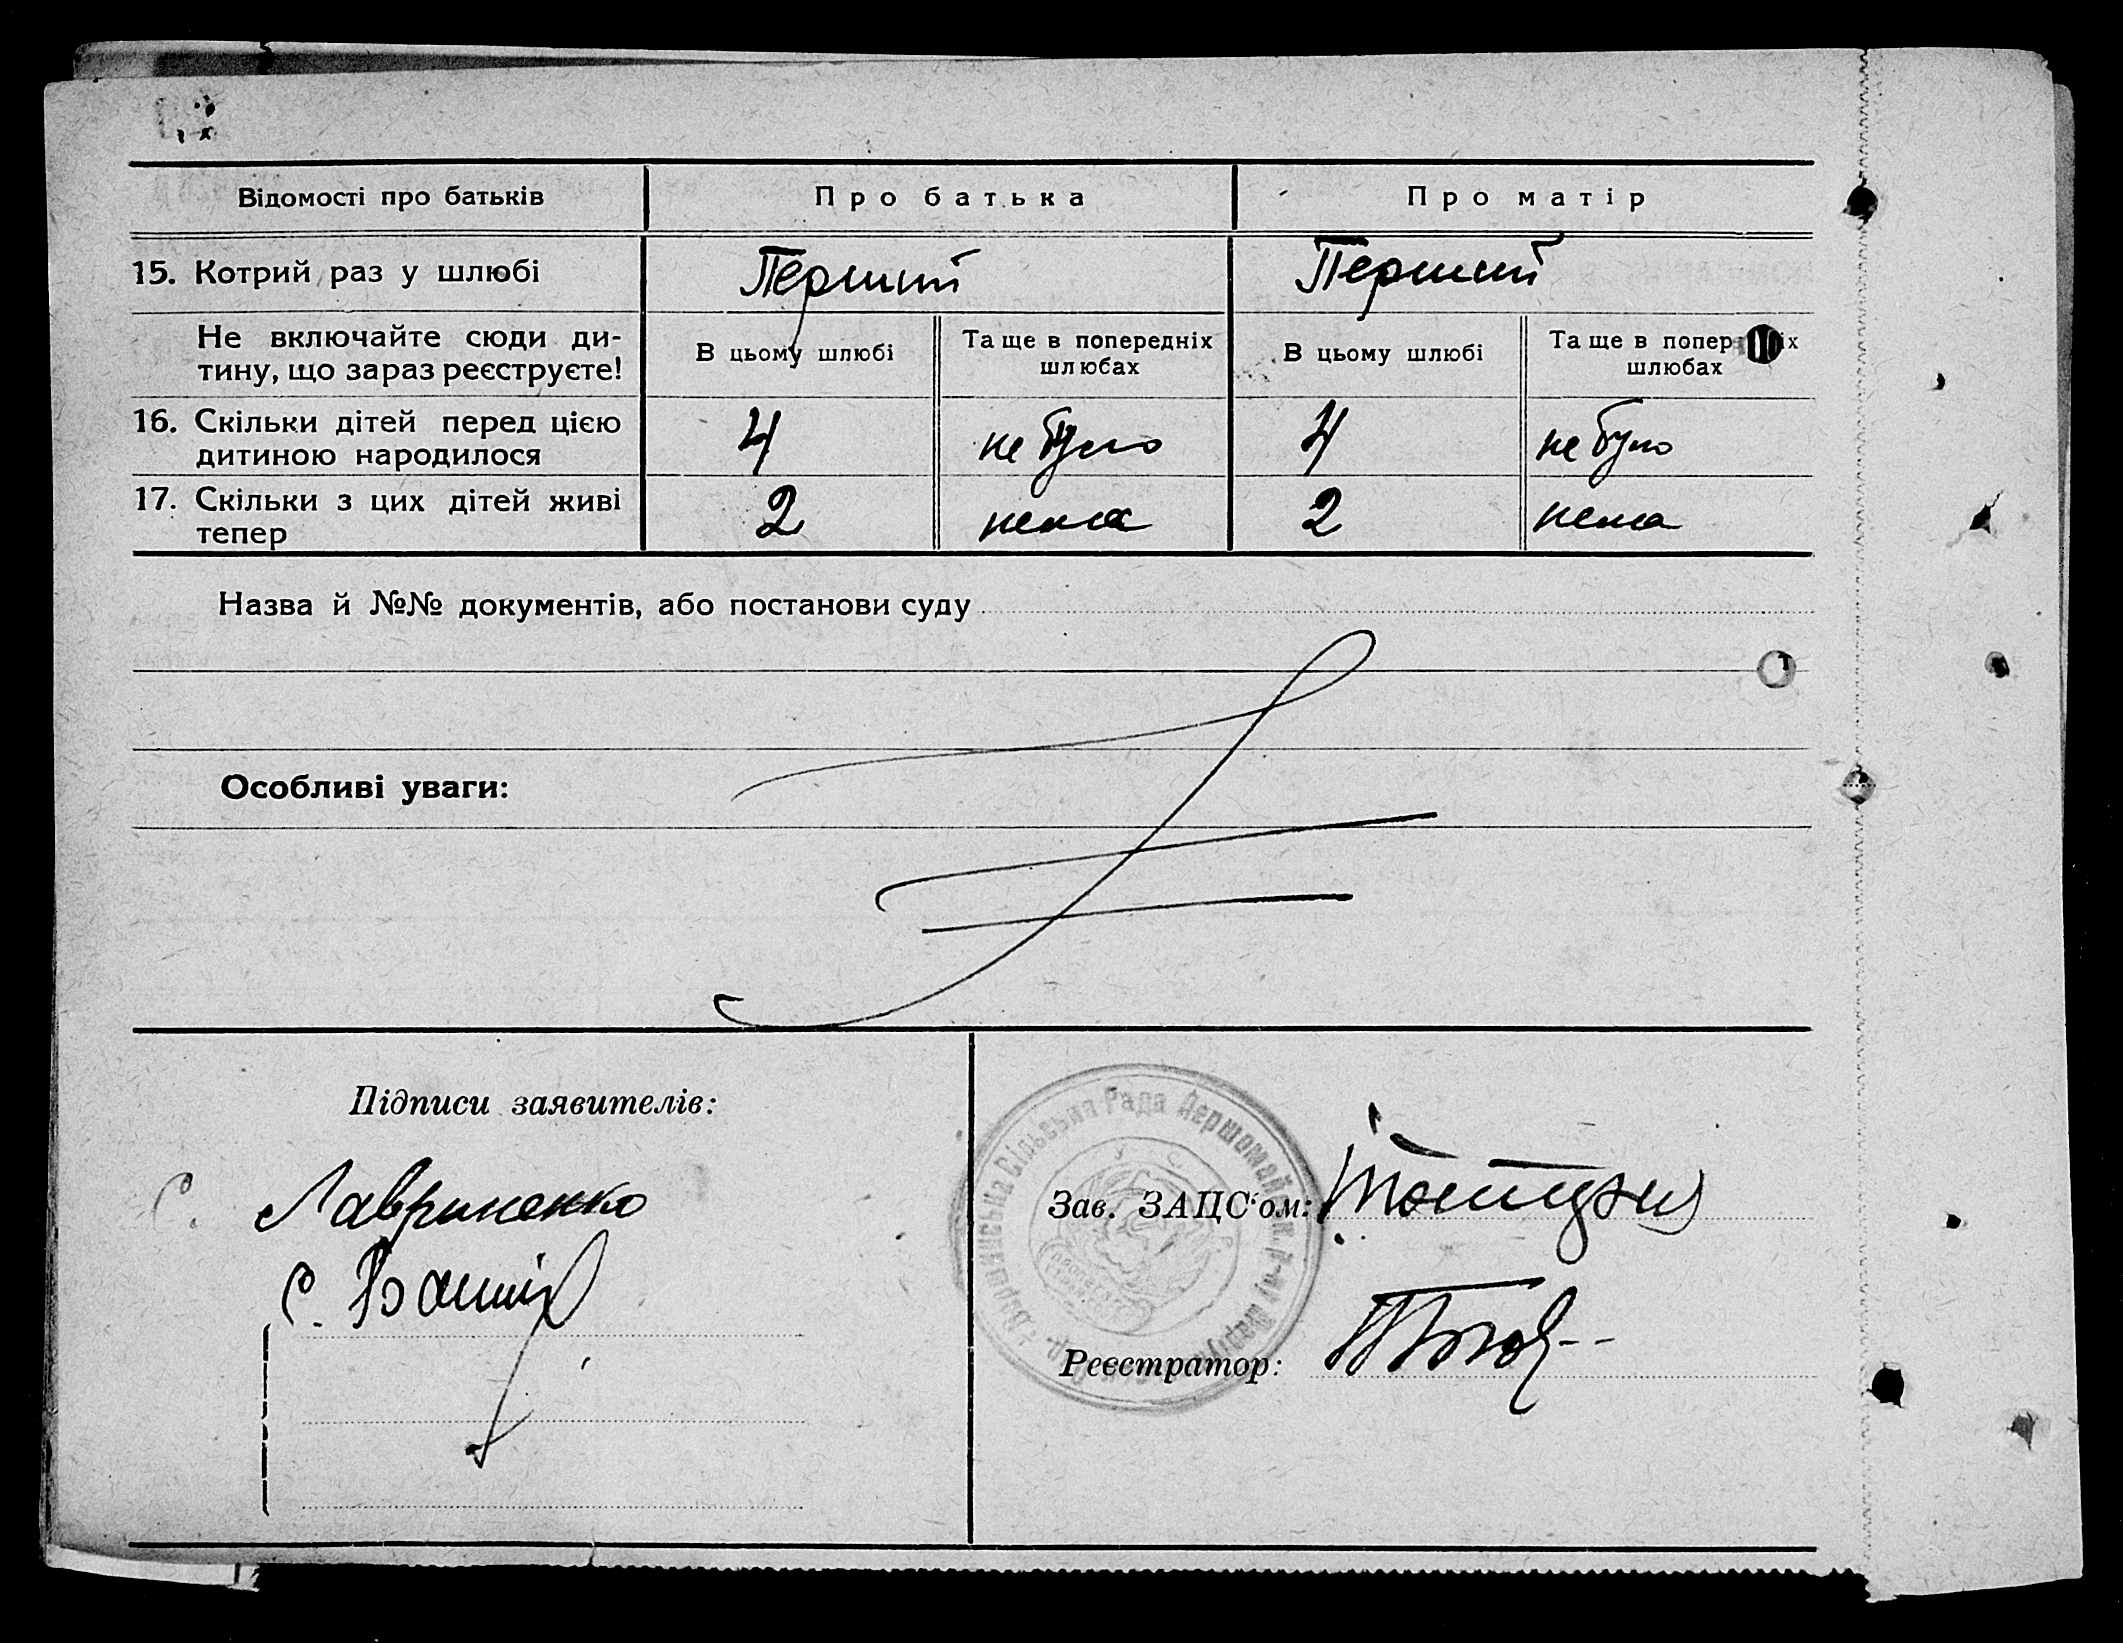 Відомості про батьків
Про батька
Про матір
15. Котрий раз у шлюбі
Перший
Перший
Не включайте сюди ди-
тину, що зараз реєструєте!
В цьому шлюбі
Та ще в попередніх
шлюбах
В цьому шлюбі
Та ще в попер іх
шлюбах
16. Скільки дітей перед цією
дитиною народилося
4
не було
4
не було
17. Скільки з цих дітей живі
тепер
2
нема
2
нема
Назва й №№ документів, або постанови суду
Особливі уваги:
Підписи заявителів:
С. Лавриненко
С.
Сільська Рада Первомайськ. р-ну
Зав. ЗАЦС‘ом:
Реєстратор: